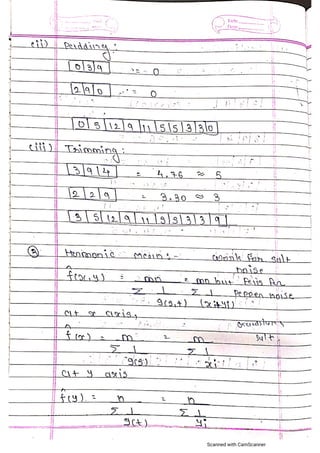 (ii) Padding :
0 3 9 = 0
2 9 0 = 0
0 5 12 9 11 5 5 3 3 0
(iii) Trimming :
3 9 4 = 4.76 ≈ 5
2 2 9 = 3.30 ≈ 3
3 5 12 9 11 5 5 3 3 9
Harmonic mean :- work for salt
noise
f̂(x,y) = mn = mn but fails for
Σ 1 Σ 1 pepper noise
g(s,t) (xi+yi)
at x axis,
f̂(x) = m = m salt
Σ 1 Σ 1
g(s) xi
at y axis
f̂(y) = n = n
Σ 1 Σ 1
g(t) yi
Scanned with CamScanner